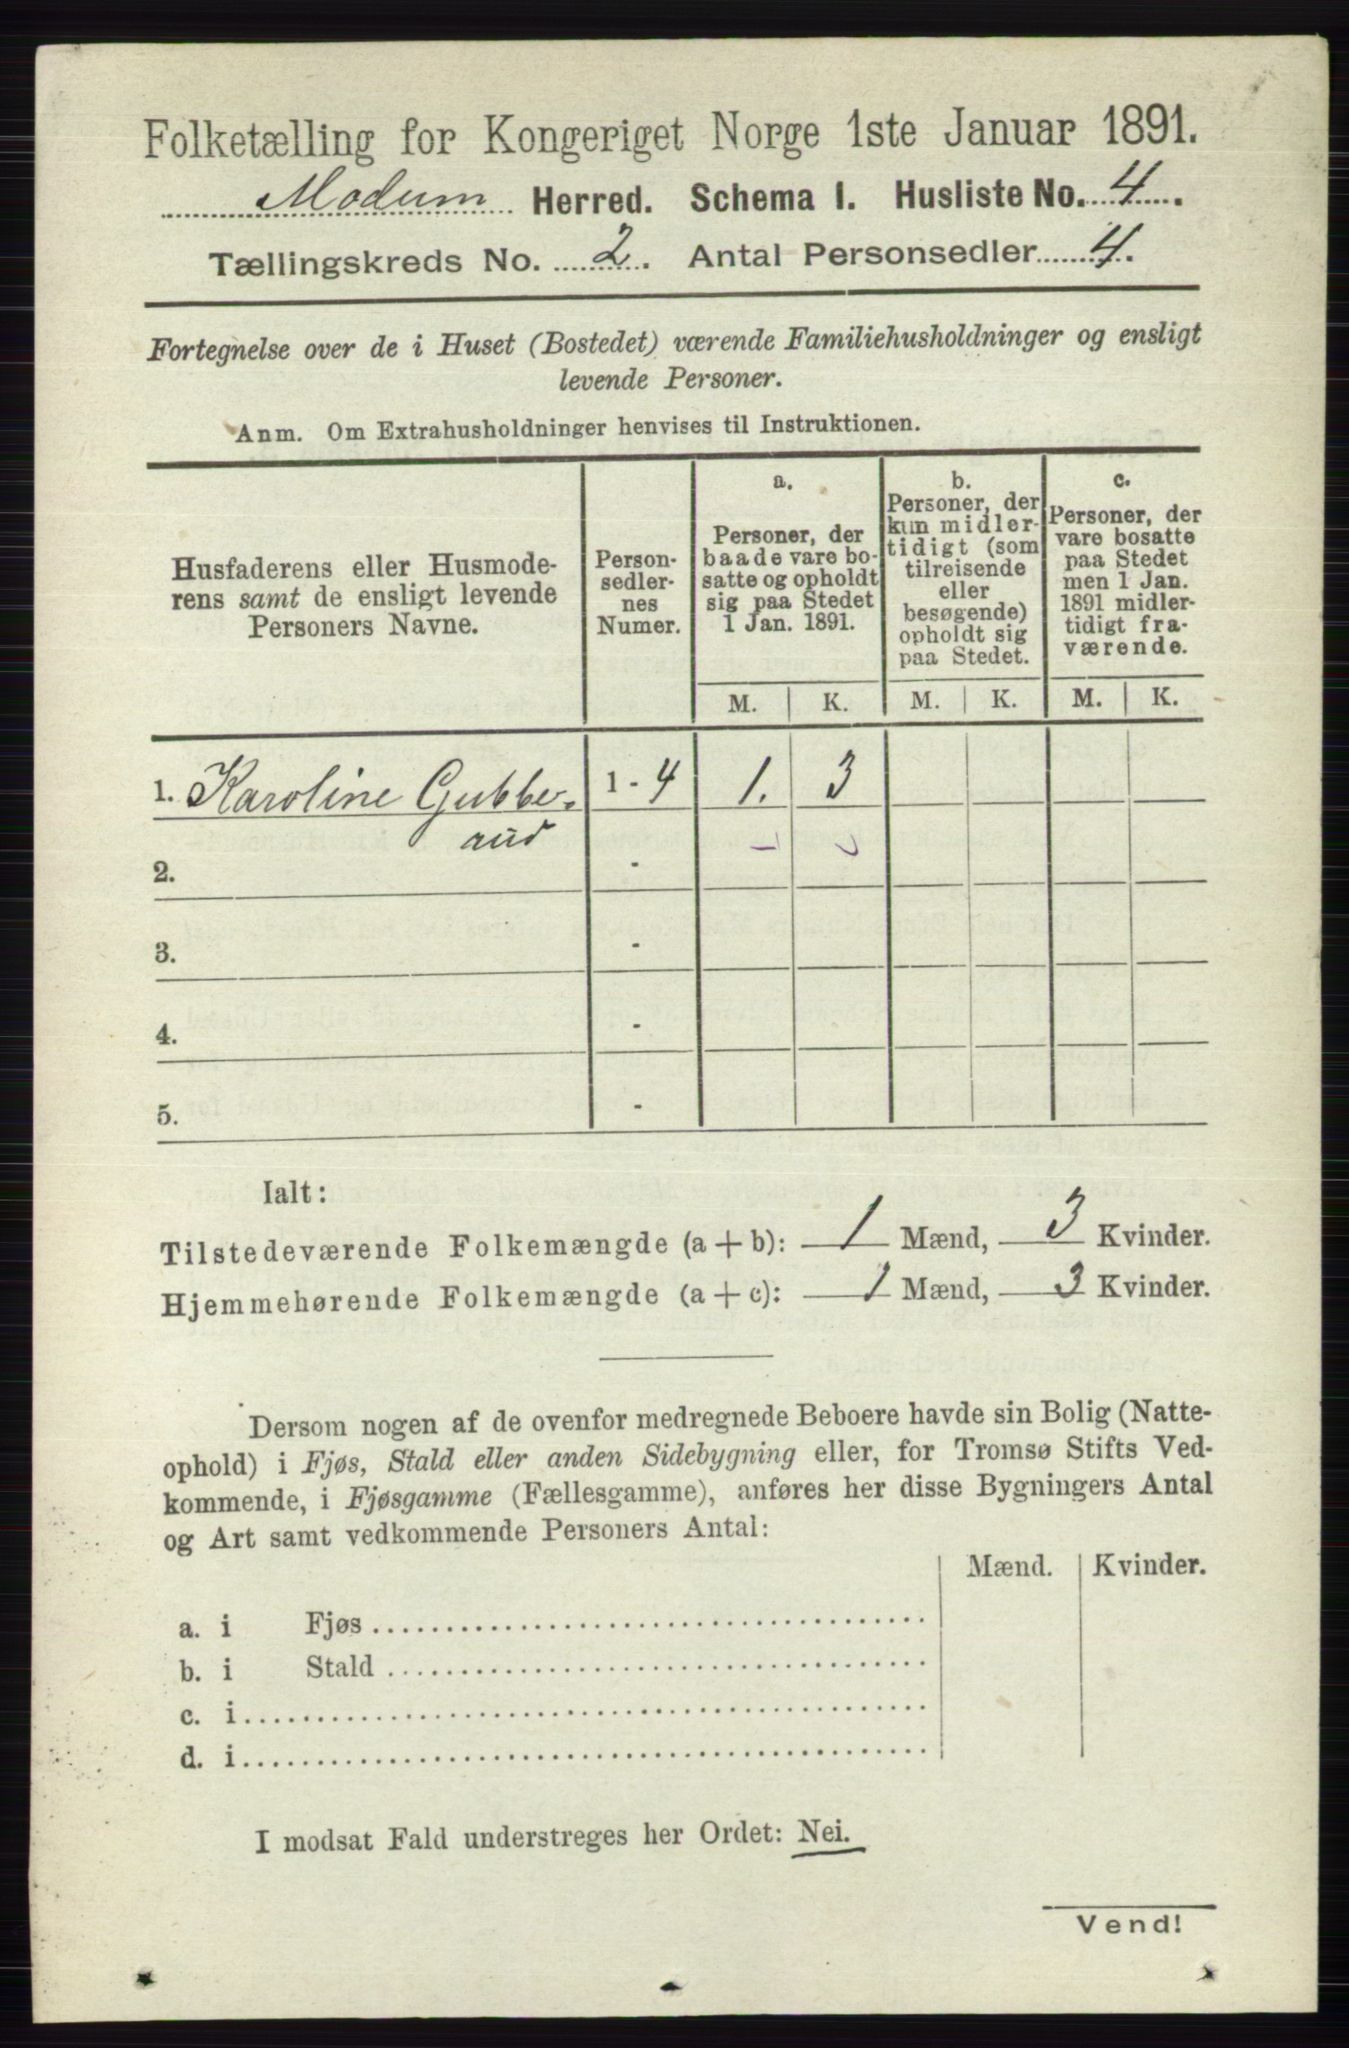 Folketælling for Kongeriget Norge 1ste Januar 1891.
Modum Herred. Schema I. Husliste No. 4.
Tællingskreds No. 2. Antal Personsedler 4.
Fortegnelse over de i Huset (Bostedet) værende Familiehusholdninger og ensligt
levende Personer.
Anm. Om Extrahusholdninger henvises til Instruktionen.
Husfaderens eller Husmode-
rens samt de ensligt levende
Personers Navne.
Person-
sedler-
nes
Numer.
a.
Personer, der
baade vare bo-
satte og opholdt
sig paa Stedet
1 Jan. 1891.
b.
Personer, der
kun midler-
tidigt (som
tilreisende
eller
besøgende)
opholdt sig
paa Stedet.
c.
Personer, der
vare bosatte
paa Stedet
men 1 Jan.
1891 midler-
tidigt fra-
værende.
M. K. M. K. M. K.
1. Karoline Gubbe- 1 - 4 1. 3
aud
2. -
3. -
4. -
5. -
Ialt:
Tilstedeværende Folkemængde (a + b): 1 Mænd, 3 Kvinder.
Hjemmehørende Folkemængde (a + c): 1 Mænd, 3 Kvinder.
Dersom nogen af de ovenfor medregnede Beboere havde sin Bolig (Natte-
ophold) i Fjøs, Stald eller anden Sidebygning eller, for Tromsø Stifts Ved-
kommende, i Fjøsgamme (Fællesgamme), anføres her disse Bygningers Antal
og Art samt vedkommende Personers Antal:
Mænd. Kvinder.
a. i Fjøs
b. i Stald
c. i
d. i
I modsat Fald understreges her Ordet: Nei.
Vend!